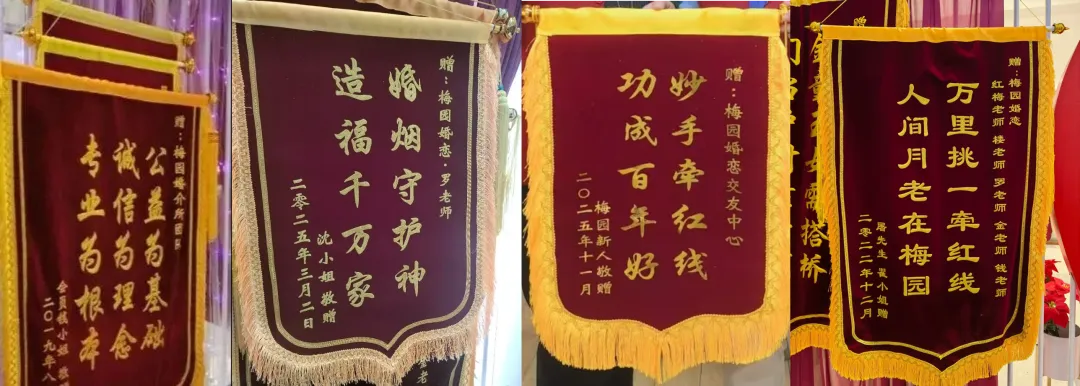 赠：梅园婚介所团队
公益为基础
诚信为理念
专业为根本
会员钱小姐 敬
二〇一九年八
赠：梅园婚恋·罗老师
婚烟守护神
造福千万家
沈小姐 敬赠
二零二五年三月二日
赠：梅园婚恋交友中心
妙手牵红线
功成百年好
梅园新人敬赠
二〇二五年十一月
赠：梅园婚恋
红梅老师 楼老师 罗老师 金老师 钱老师
万里挑一牵红线
人间月老在梅园
二零二二年十二月
需搭桥